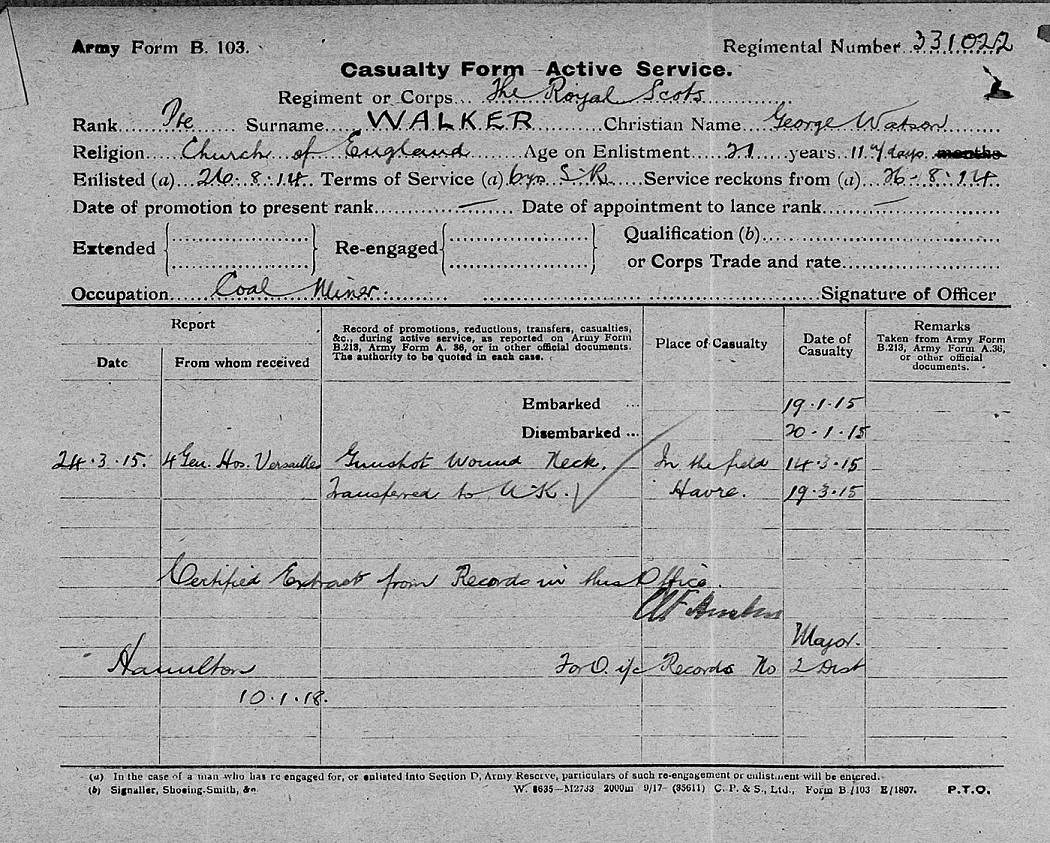 Army Form B. 103. Regimental Number 331022
Casualty Form Active Service.
Regiment or Corps The Royal Scots
Rank Pte Surname WALKER Christian Name George Watson
Religion Church of England Age on Enlistment 21 years 11 7 days months
Enlisted (a) 26.8.14. Terms of Service (a) 6yrs S.R. Service reckons from (a) 26-8.14
Date of promotion to present rank — Date of appointment to lance rank —
Extended { } Re-engaged { } Qualification (b)
or Corps Trade and rate
Occupation Coal Miner. Signature of Officer
Report
Date
From whom received
Record of promotions, reductions, transfers, casualties,
&c., during active service, as reported on Army Form
B.213, Army Form A. 36, or in other official documents.
The authority to be quoted in each case.
Place of Casualty
Date of
Casualty
Remarks
Taken from Army Form
B.213, Army Form A.36,
or other official
documents.
Embarked ... 19.1.15
Disembarked ... 20-1.15
24.3.15. 4 Gen. Hos. Versailles Gunshot Wound Neck. In the field 14.3.15
Transferred to U.K. Havre. 19.3.15
Certified Extract from Records in this Office.
Major.
Hamilton For O. i/c Records No 2 Dist
10.1.18.
(a) In the case of a man who has re engaged for, or enlisted into Section D, Army Reserve, particulars of such re-engagement or enlistment will be entered.
(b) Signaller, Shoeing-Smith, &c. W. 8635—M2733 2000m 9/17 (35611) C. P. & S., Ltd., Form B./103 E/1807. P.T.O.